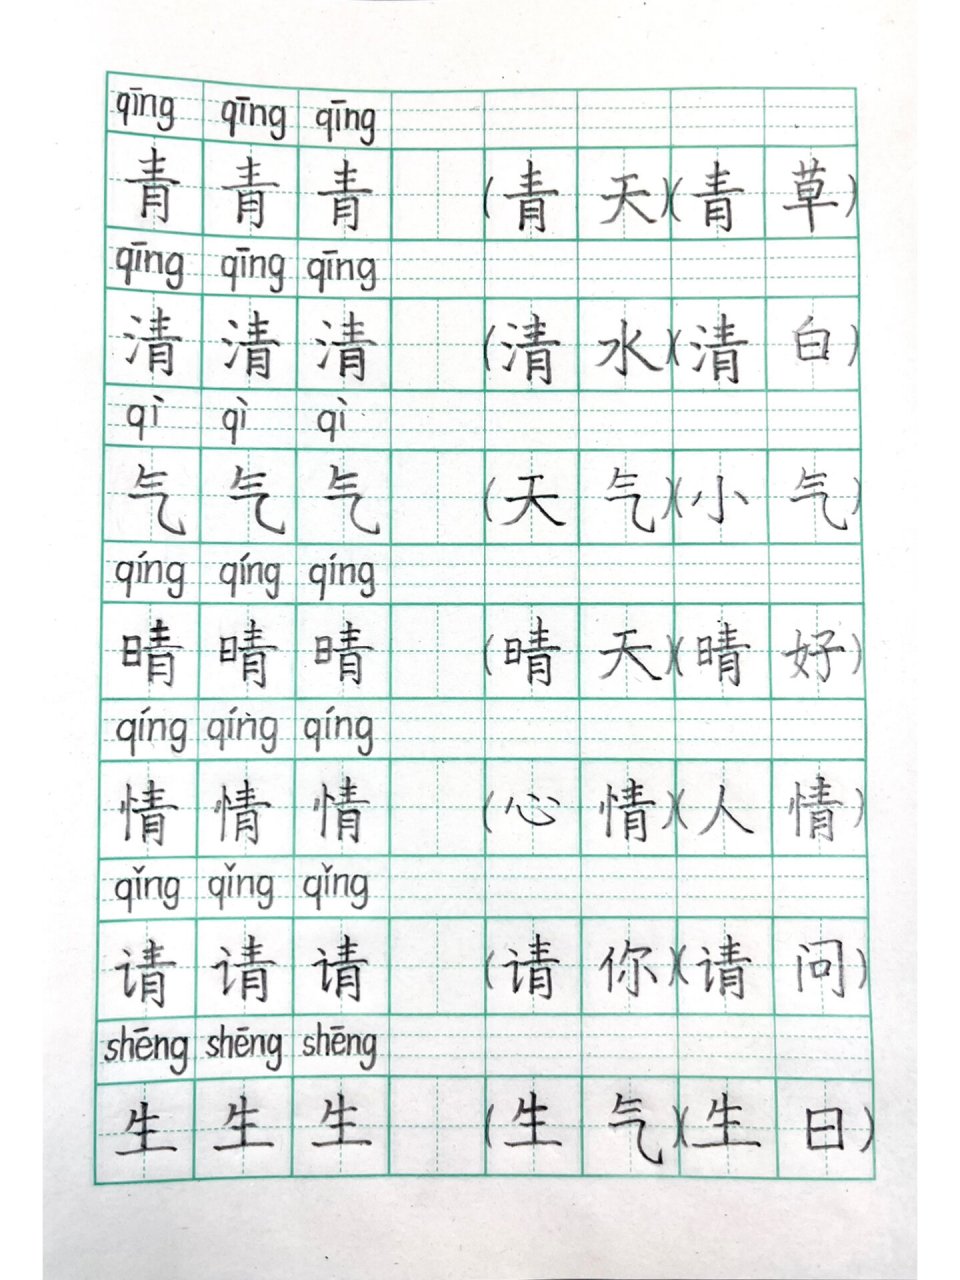 qīng qīng qīng
青 青 青 (青 天)(青 草)
qīng qīng qīng
清 清 清 (清 水)(清 白)
qì qì qì
气 气 气 (天 气)(小 气)
qíng qíng qíng
晴 晴 晴 (晴 天)(晴 好)
qíng qíng qíng
情 情 情 (心 情)(人 情)
qǐng qǐng qǐng
请 请 请 (请 你)(请 问)
shēng shēng shēng
生 生 生 (生 气)(生 日)